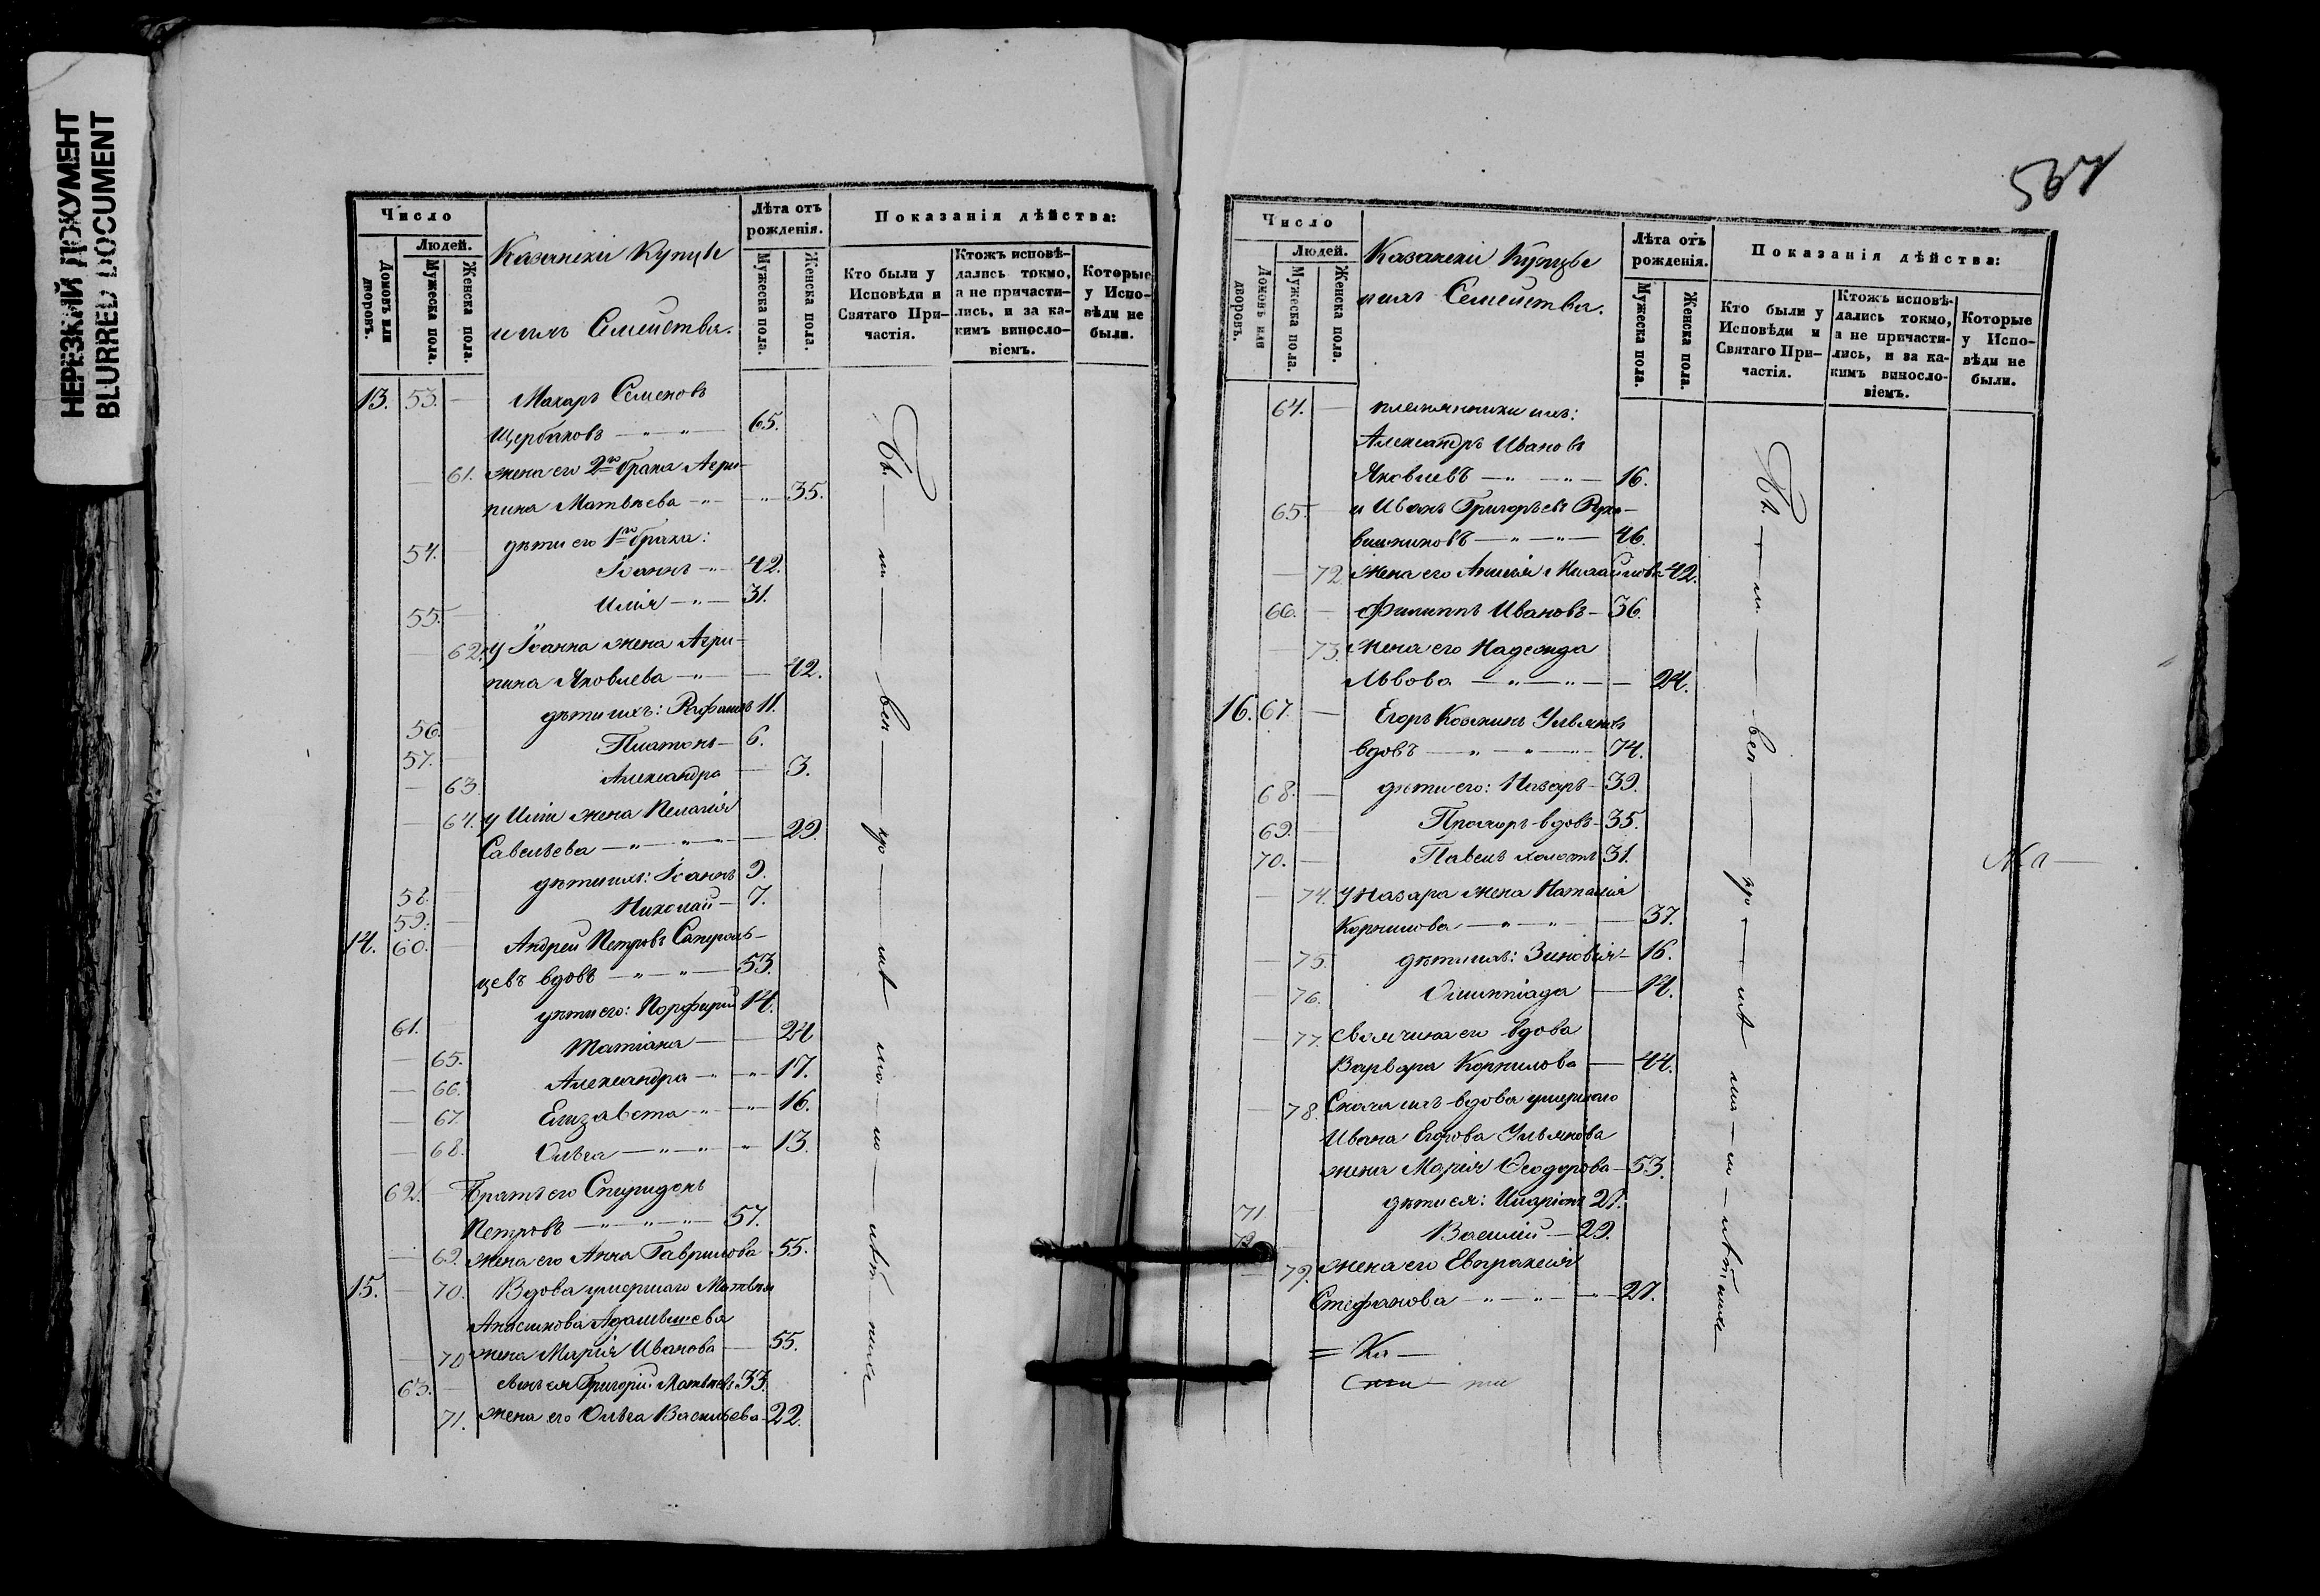 НЕРЕЗКИЙ ДОКУМЕНТ
BLURRED DOCUMENT
Число
Людей.
Домовъ или дворовъ.
Мужеска пола.
Женска пола.
Казанскіи Купцы
и ихъ Семейства.
Лѣта отъ рожденія.
Мужеска пола.
Женска пола.
Показанія дѣйства:
Кто были у Исповѣди и Святаго Причастія.
Ктожъ исповѣ-дались токмо, а не причасти-лись, и за ка-кимъ виносло-віемъ.
Которые у Испо-вѣди не были.
13. 53. — Макаръ Семеновъ
Щербаковъ — 65.
— 61. жена его 2го брака Агри-
пина Матвѣева — 35.
54. — дѣти его 1го брака:
Іоаннъ — 42.
55. — Илія — 31.
— 62. у Іоанна жена Агри-
пина Яковлева — 42.
56. — дѣти ихъ: 11.
57. — Платонъ — 6.
— 63. Александра — 3.
— 64. у Иліи жена Пелагія
Савельева — 29.
58. — дѣти ихъ: Іоаннъ 9.
59. — Николай — 7.
14. 60. — Андрей Петровъ
цевъ вдовъ — 53.
61. — дѣти его: Порфирій 14.
— 65. Татіана — 24
— 66. Александра — 17.
— 67. Елизавета — 16.
— 68. Ольга — 13.
62. — Братъ его Спиридонъ
Петровъ — 57.
— 69. жена его Анна Гаврилова 55.
15. — 70. Вдова умершаго Матвѣя
— 70 жена Марія Иванова — 55.
63. — сынъ ея Григорій Матвѣевъ 33.
71. жена его Ольга Васильева 22.
Число
Людей.
Домовъ или дворовъ.
Мужеска пола.
Женска пола.
Казанскіи Купцы
и ихъ Семейства.
Лѣта отъ рожденія.
Мужеска пола.
Женска пола.
Показанія дѣйства:
Кто были у Исповѣди и Святаго При-частія.
Ктожъ исповѣ-дались токмо, а не причасти-лись, и за ка-кимъ виносло-віемъ.
Которые у Испо-вѣди не были.
64. — племянники ихъ:
Александръ Ивановъ
Яковлевъ — 16.
65. — и Иванъ Григорьевъ Рука-
вишниковъ — 46.
— 72. жена его Михайлова 42.
66. — Филиппъ Ивановъ — 36.
— 73. жена его Надежда
Львова — 24.
16. 67. — Егоръ Козминъ Ульяновъ
вдовъ — 74.
68. — дѣти его: Назаръ — 39.
69. — Прохоръ вдовъ — 35.
70. — Павелъ холостъ 31.
— 74. у Назара жена Наталія
Корнилова — 37.
— 75. дѣти ихъ: Зиновія — 16.
— 76. Олимпіада — 14.
— 77. Свояченя его вдова
Варвара Корнилова — 44.
— 78. Сноха ихъ вдова умершаго
Ивана Егорова Ульянова
жена Марія Ѳеодорова — 53.
71 дѣти ея: Иларіонъ 27.
72 Василій — 29.
— 79. жена его Евпраксія
Стефанова — 27.
= Ка —